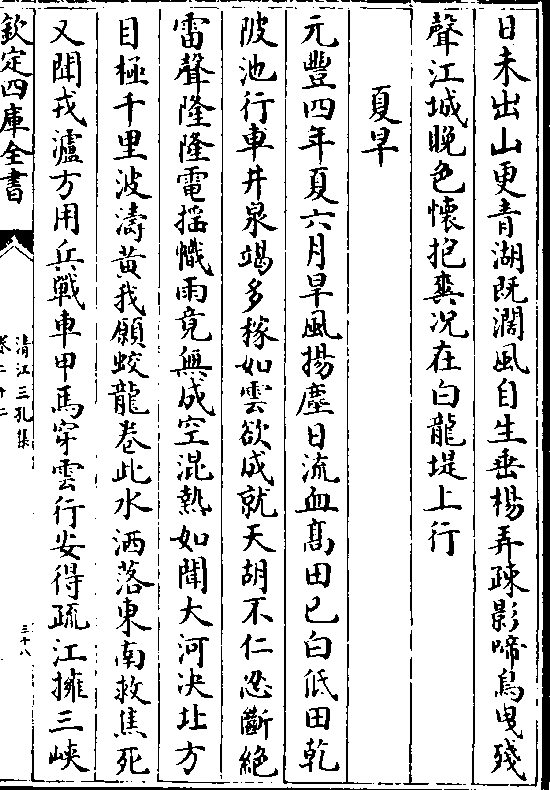 日未出山更青湖既濶風自生垂楊弄疎影啼鳥曳殘
聲江城晚色懷抱爽况在白龍堤上行
夏旱
元豐四年夏六月旱風揚塵日流血髙田已白低田乾
陂池行車井泉竭多稼如雲欲成就天胡不仁忍斷絶
雷聲隆隆電揺幟雨竟無成空混熱如聞大河决北方
目極千里波濤黄我願蛟龍卷此水洒落東南救焦死
又聞戎瀘方用兵戰車甲馬穿雲行安得疏江擁三峽
欽定四庫全書
清江三孔集
卷二十二
三十八